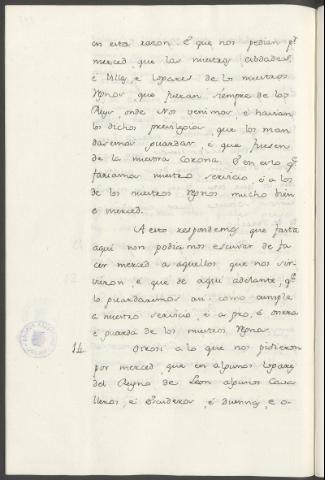 en esta razon. E que nos pedian pr
merced que las nuestras cibdades,
e Villas, e lugares de los nuestros
Regnos, que fueran siempre de los
Reyes, onde Nos venimos, e havian
los dichos previlegios, que los man
dasemos guardar, e que fuesen
de la nuestra Corona. E en esto qe
fariamos nuestro servicio, e a los
de los nuestros Regnos mucho bien
e merced.
A esto respondemos que fasta
aqui non podiamos escusar de fa
cer merced a aquellos que nos sir-
vieron, e que de aqui adelante, qe
lo guardaremos asi como cumple
a nuestro servicio, e a pro, e onrra
e guarda de los nuestros Regnos.
14. Otrosi a lo que nos pidieron
por merced, que en algunos lugares
del Reyno de Leon algunos Cava
lleros, e Escuderos, e Duennas, e o-